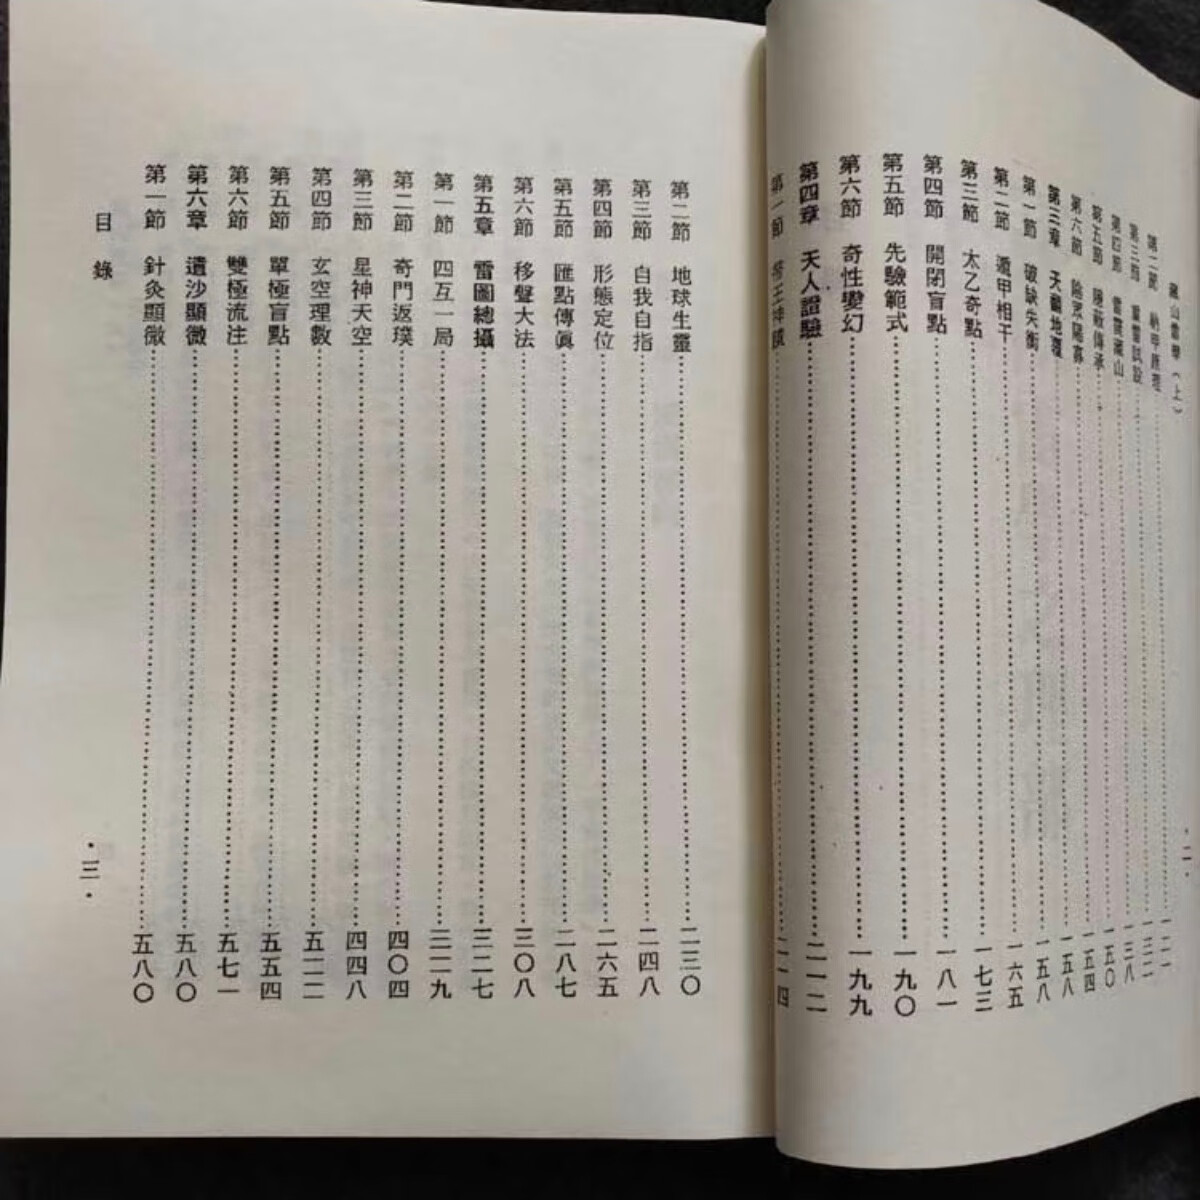 山雷學（上）
第二節 納甲原理 一二一
第三節 重雷試設 一三二
第四節 雷霆藏山 一三八
第五節 隱蔽傳承 一五〇
第六節 陰眾陽寡 一五四
第三章 天翻地覆 一五八
第一節 破缺失衡 一五八
第二節 遁甲相干 一六五
第三節 太乙奇點 一七三
第四節 開閉盲點 一八一
第五節 先驗範式 一九〇
第六節 奇性變幻 一九九
第四章 天人證驗 二一二
第一節 帝王 二一四
・二・
第二節 地球生靈 二三〇
第三節 自我自指 二四八
第四節 形態定位 二六五
第五節 匯點傳眞 二八七
第六節 移聲大法 三〇八
第五章 雷圖總攝 三二七
第一節 四互一局 三二九
第二節 奇門返璞 四〇四
第三節 星神天空 四四八
第四節 玄空理數 五二二
第五節 單極盲點 五五四
第六節 雙極流注 五七一
第六章 遺沙顯微 五八〇
第一節 針灸顯微 五八〇
目錄
・三・